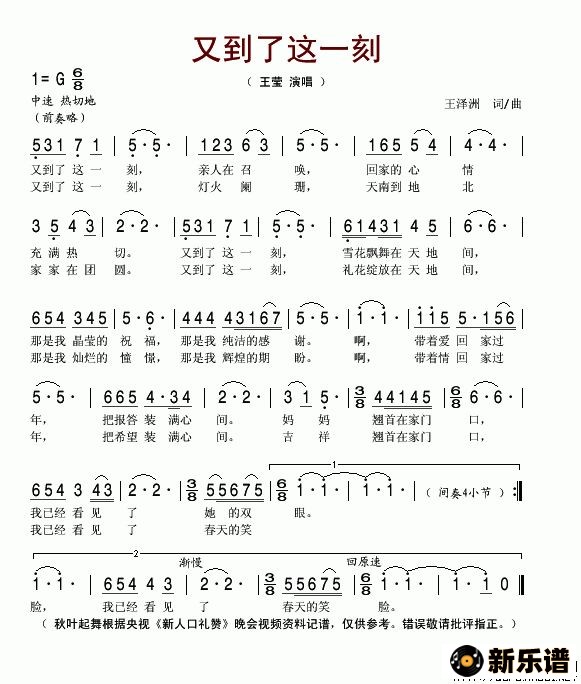 又到了这一刻
（ 王莹 演唱 ）
1= G 6/8
中速 热切地
（前奏略）
王泽洲 词/曲
531 7 1 | 5· 5· | 123 6 3 | 2· 2· | 165 5 4 | 4· 4· |
又到了 这 一 刻， 亲人在 召 唤， 回家的 心 情
又到了 这 一 刻， 灯火 阑 珊， 天南到 地 北
3 5 4 3 | 2· 2· | 531 7 1 | 5· 5· | 61431 4 5 | 6· 6· |
充 满 热 切。 又到了 这 一 刻， 雪花飘舞在 天 地 间，
家 家 在 团 圆。 又到了 这 一 刻， 礼花绽放在 天 地 间，
654 345 | 5· 6· | 444 43167 | 5· 5· | 1· 1· | 115 5·156 |
那是我 晶莹的 祝 福， 那是我 纯洁的感 谢。 啊， 带着爱 回 家过
那是我 灿烂的 憧 憬， 那是我 辉煌的期 盼。 啊， 带着情 回 家过
5· 5· | 665 4·34 | 2· 2· | 3 1 5· | 3/8 44145 | 6/8 6· 6· |
年， 把报答 装 满心 间。 妈 妈 翘首在家门 口，
年， 把希望 装 满心 间。 吉 祥 翘首在家门 口，
1
654 3 43 | 2· 2· | 3/8 55675 | 6/8 1· 1· | 1· 1· | （ 间奏4小节 ） :||
我已经 看 见 了 她 的双 眼。
我已经 看 见 了 春天的笑
2
渐慢 回原速
1· 1· | 654 4 3 | 2· 2· | 3/8 55675 | 6/8 1· 1· | 1· 1 0 ||
脸， 我已经 看 见 了 春天的笑 脸。
（ 秋叶起舞根据央视《新人口礼赞》晚会视频资料记谱，仅供参考。错误敬请批评指正。）
新乐谱